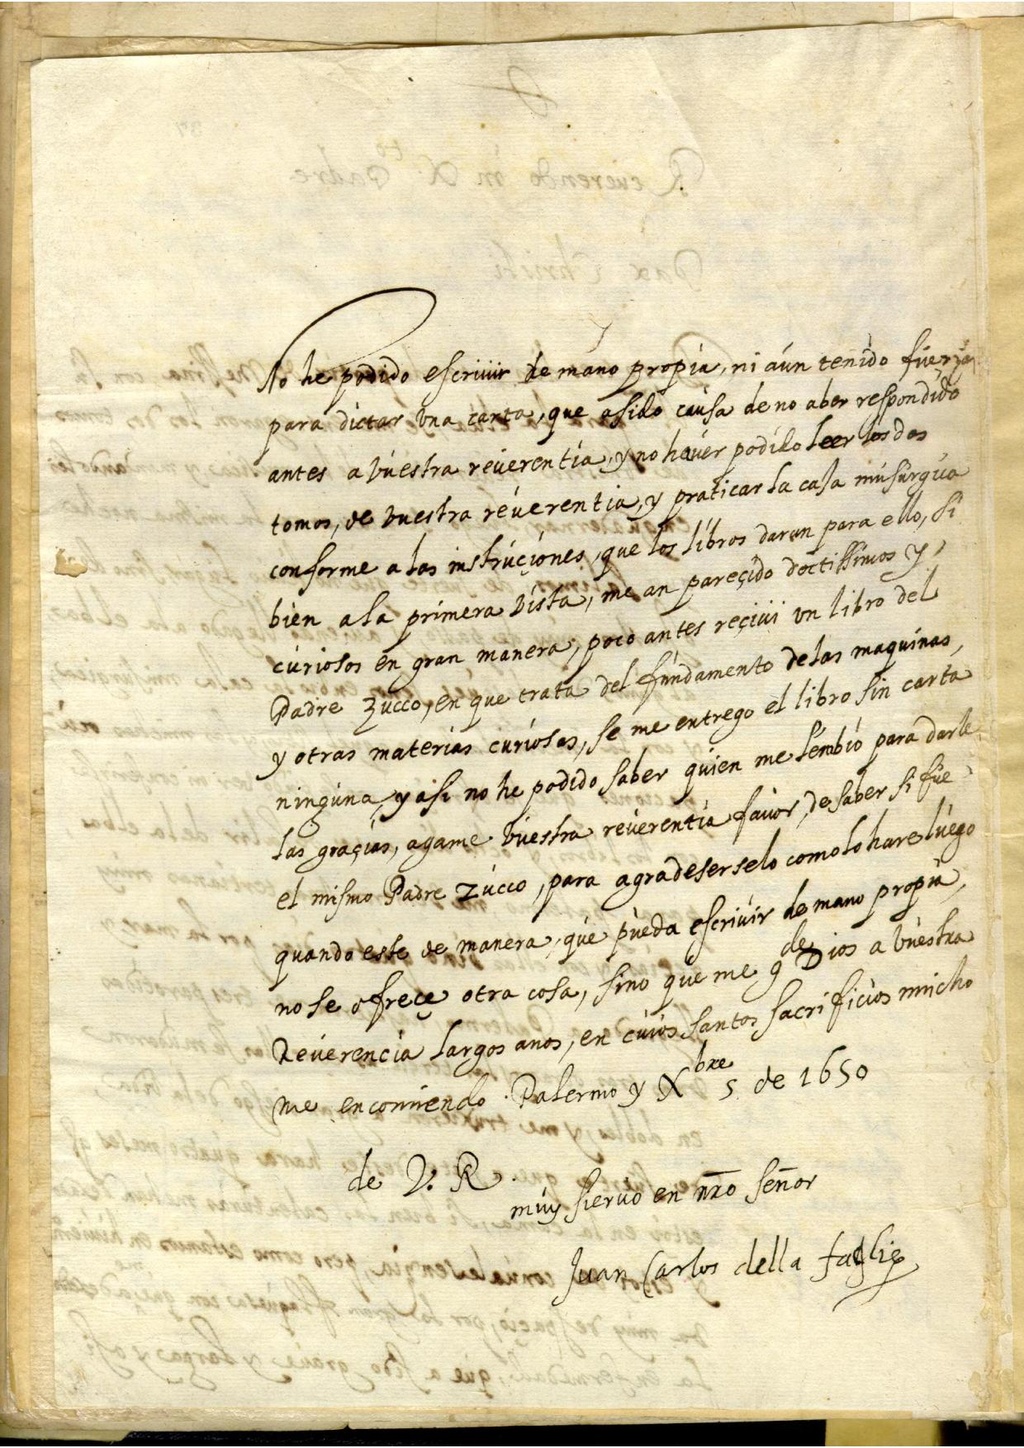 No he podido escriuir de mano propia, ni aun tenido fuerza
para dictar una carta, que a sido causa de no aber respondido
antes a vuestra reuerentia, y no hauer podido leer los dos
tomos, de vuestra reuerentia, y praticar la casa musurgua
conforme a las instruçiones, que los libros daran para ello, si
bien a la primera vista, me an pareçido doctissimos y
curiosos en gran manera, poco antes reçiui un libro del
Padre Zucco, en que trata del fundamento de las maquinas,
y otras materias curiosas, se me entrego el libro sin carta
ninguna, y asi no he podido saber quien me lembio para darle
las graçias, agame vuestra reuerentia fauor, de saber si fue
el mismo Padre Zucco, para agradeserselo como lo hare luego
quando este de manera, que pueda escriuir de mano propia,
no se ofreçe otra cosa, sino que me g.de Dios a vuestra
Reuerencia largos anos, en cuios santos sacrificios mucho
me encomiendo. Palermo y Xbre 5 de 1650
de V. R.
muy sieruo en nro señor
Juan Carlos della Faglie